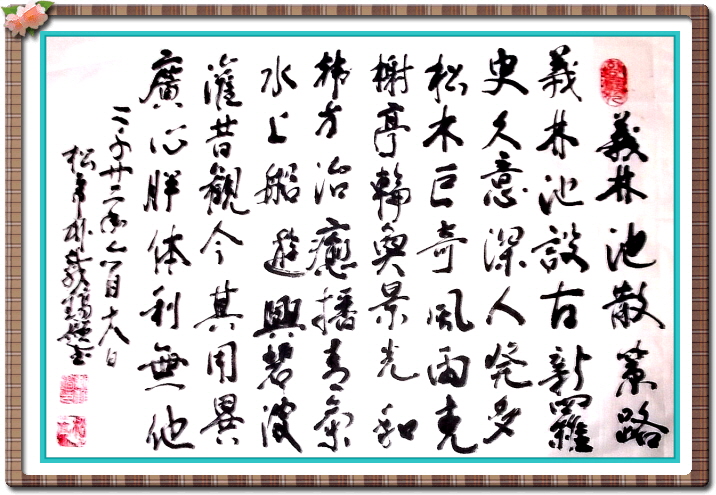 義林池散策路
義林池設古新羅
史久意深人発多
松木巨奇風雨克
榭亭輪奐景光和
韓方治癒播氣
水上船遊興碧波
灌昔觀今其用異
廣心胖体利無他
二千廿二年六月十八日
松亭朴